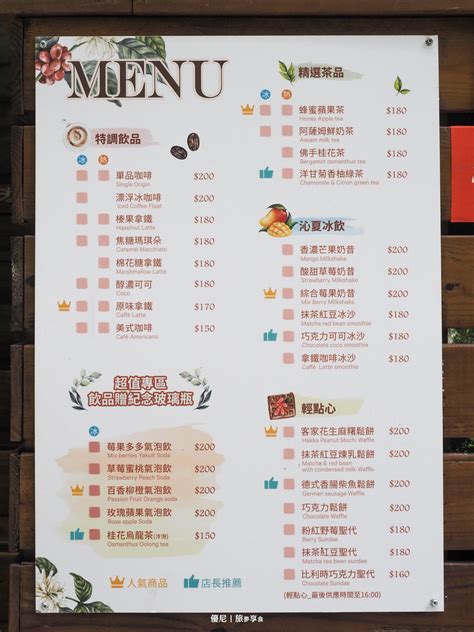 MENU
特調飲品
冰 熱
單品咖啡 $200
Single Origin
漂浮冰咖啡 $200
Iced Coffee Float
榛果拿鐵 $180
Hazelnut Latte
焦糖瑪琪朵 $180
Caramel Macchiato
棉花糖拿鐵 $180
Marshmallow Latte
醇濃可可 $180
Coco
原味拿鐵 $170
Caffè Latte
美式咖啡 $150
Café Americano
超值專區
飲品贈紀念玻璃瓶
冰
莓果多多氣泡飲 $200
Mix berries Yakult Soda
草莓蜜桃氣泡飲 $200
Strawberry Peach Soda
百香柳橙氣泡飲 $200
Passion Fruit Orange Soda
玫瑰蘋果氣泡飲 $200
Rose apple Soda
桂花烏龍茶(冷泡) $150
Osmanthus Oolong tea
人氣商品 店長推薦
精選茶品
冰 熱
蜂蜜蘋果茶 $180
Honey Apple tea
阿薩姆鮮奶茶 $180
Assam milk tea
佛手桂花茶 $180
Bergamot osmanthus tea
洋甘菊香柚綠茶 $180
Chamomile & Citron green tea
沁夏冰飲
香濃芒果奶昔 $200
Mango Milkshake
酸甜草莓奶昔 $200
Strawberry Milkshake
綜合莓果奶昔 $200
Mix Berry Milkshake
抹茶紅豆冰沙 $180
Matcha red bean smoothie
巧克力可可冰沙 $180
Chocolate coco smoothie
拿鐵咖啡冰沙 $180
Caffè Latte smoothie
輕點心
客家花生麻糬鬆餅 $200
Hakka Peanut Mochi Waffle
抹茶紅豆煉乳鬆餅 $200
Matcha & red bean
with condensed milk Waffle
德式香腸柴魚鬆餅 $200
German sausage Waffle
巧克力鬆餅 $200
Chocolate Waffle
粉紅野莓聖代 $180
Berry Sundae
抹茶紅豆聖代 $180
Matcha rea bean sundae
比利時巧克力聖代 $160
Chocolate Sundae
(輕點心_最後供應時間至16:00)
優尼 | 旅夢享食